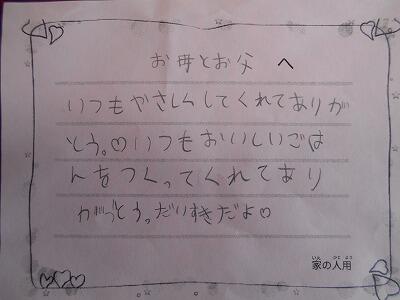 お母とお父 へ
いつもやさしくしてくれてありが
とう。♡いつもおいしいごは
んをつくってくれてあり
がとう。だいすきだよ♡
家の人用